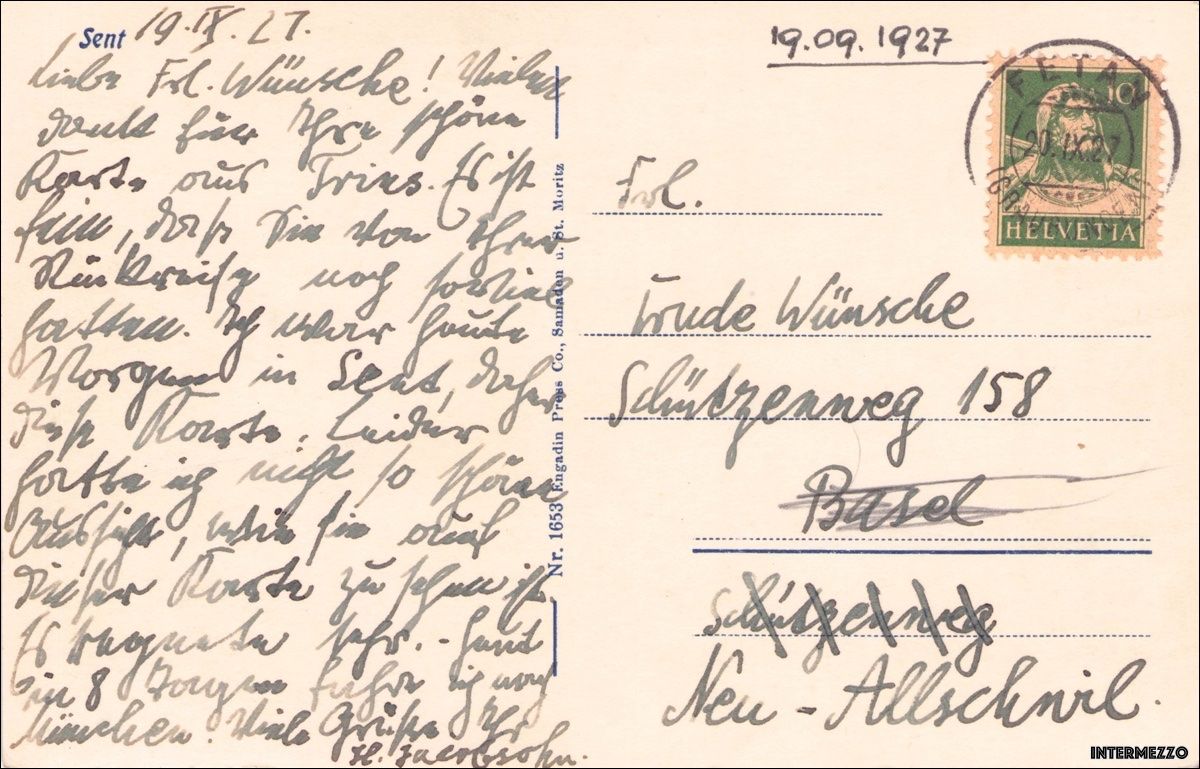 Sent 19. IX. 27.
Liebe Frl. Wünsche! Vielen
Dank für Ihre schöne
Karte aus Trins. Es ist
fein, daß Sie von Ihrer
Rückreise noch soviel
hatten. Ich war heute
Morgen in Sent, daher
diese Karte. Leider
hatte ich nicht so schöne
Aussicht, wie sie auf
dieser Karte zu sehen ist.
Es regnete sehr. - Heut
in 8 Tagen fahre ich nach
München. Viele Grüße Ihr
H. Jacobsohn.
Nr. 1653 Engadin Press Co., Samaden u. St. Moritz
19.09.1927
FETAN
20.IX.27
10
HELVETIA
Frl.
Trude Wünsche
Schützenweg 158
Basel
Schützenweg
Neu-Allschwil.
INTERMEZZO